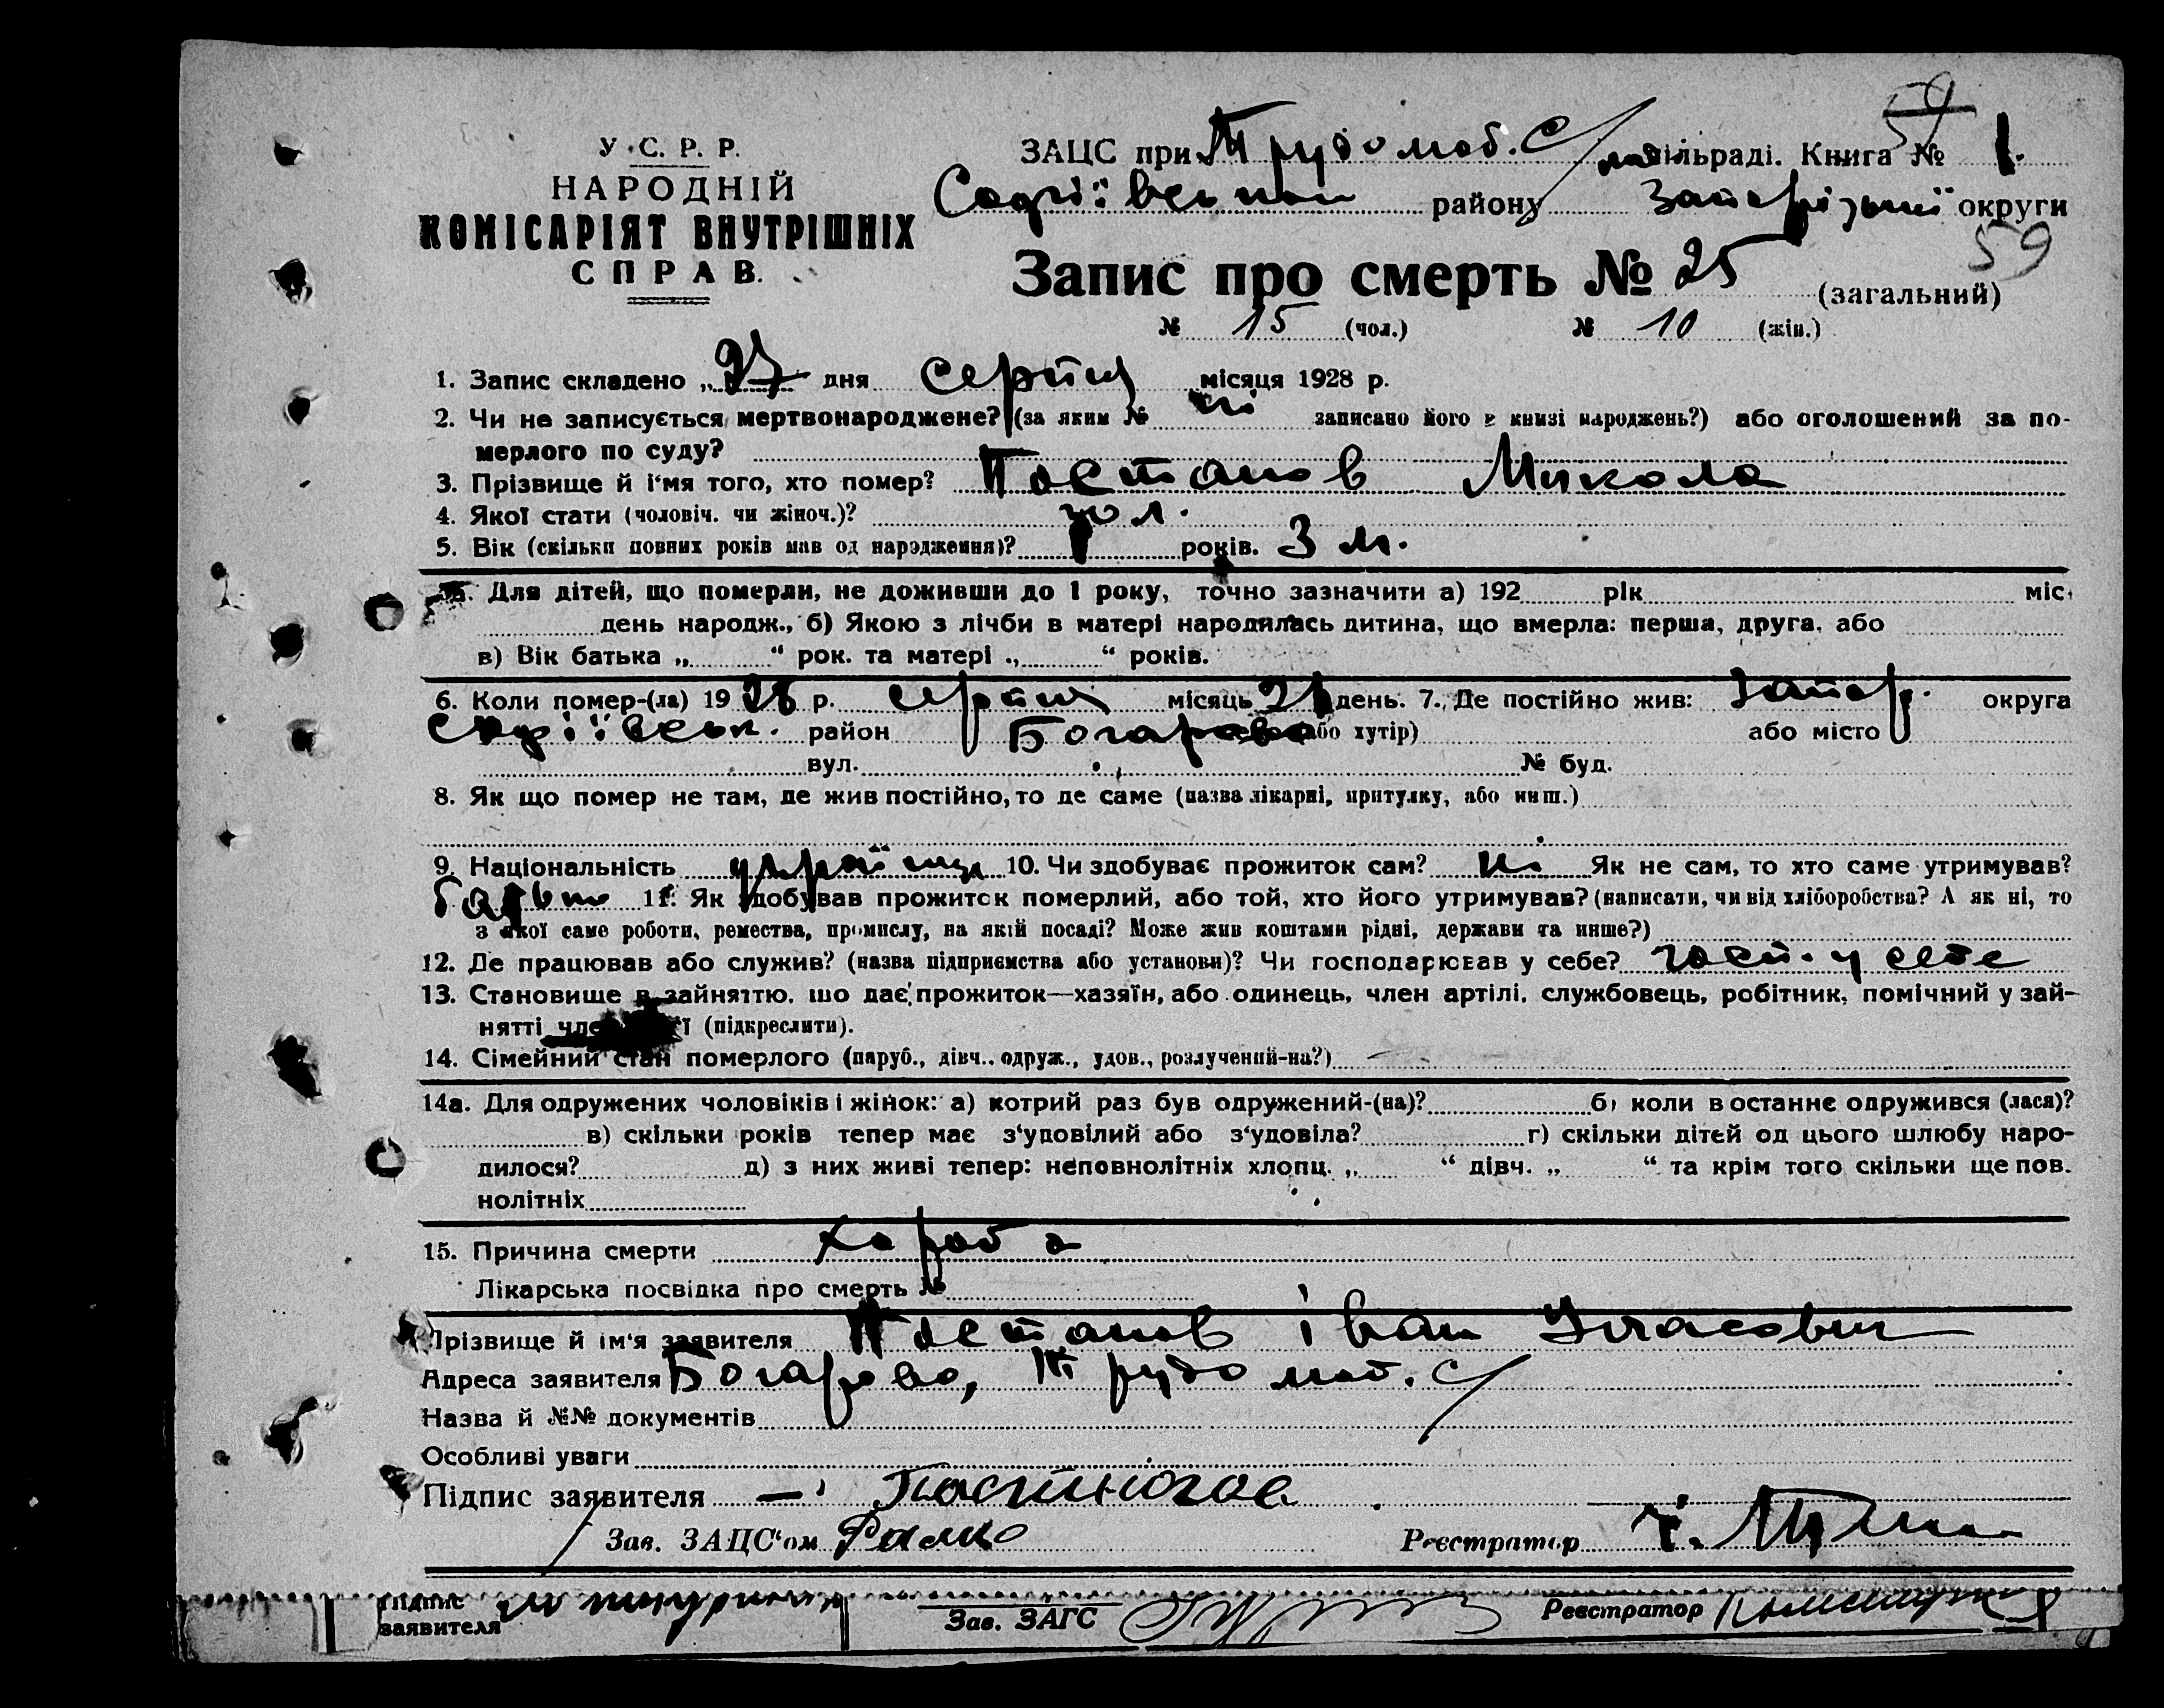 59
У.С.Р.Р.
НАРОДНІЙ
КОМІСАРІЯТ ВНУТРІШНІХ
СПРАВ.
ЗАЦС при Трудолюб. С/ сільраді. Книга № 1.
Софіївськ район Запорізької округи
59
Запис про смерть № 25 (загальний)
№ 15 (чол.) № 10 (жін.)
1. Запис складено „27 дня серпня місяця 1928 р.
2. Чи не записується мертвонароджене? (за яким № ні записано його в книзі народжень?) або оголошений за по-
мерлого по суду?
3. Прізвище й і'мя того, хто помер? Постанов Микола
4. Якої стати (чоловіч. чи жіноч.)? чол.
5. Вік (скільки повних років мав од народження)? років. 3 м.
5а. Для дітей, що померли, не доживши до 1 року, точно зазначити а) 192 рік міс.
день народж., б) Якою з лічби в матері народилась дитина, що вмерла: перша, друга, або
в) Вік батька „ “ рок. та матері „ “ років.
6. Коли помер-(ла) 1928 р. серпня місяць день. 7. Де постійно жив: Запор. округа
Софіївськ. район Богарово або хутір) або місто
вул. № буд.
8. Як що помер не там, де жив постійно, то де саме (назва лікарні, притулку, або инш.)
9. Національність українц 10. Чи здобуває прожиток сам? ні Як не сам, то хто саме утримував?
батько 11. Як здобував прожиток померлий, або той, хто його утримував? (написати, чи від хліборобства? А як ні, то
з якої саме роботи, ремества, промислу, на якій посаді? Може жив коштами рідні, держави та инше?)
12. Де працював або служив? (назва підприємства або установи)? Чи господарював у себе? госп. у себе
13. Становище в зайняттю, що дає прожиток—хазяїн, або одинець, член артілі, службовець, робітник, помічний у зай-
нятті чле ї (підкреслити).
14. Сімейний стан померлого (паруб., дівч., одруж., удов., розлучений-на?)
14а. Для одружених чоловіків і жінок: а) котрий раз був одружений-(на)? б) коли востаннє одружився (лася)?
в) скільки років тепер має з'удовілий або з'удовіла? г) скільки дітей од цього шлюбу наро-
дилося? д) з них живі тепер: неповнолітніх хлопц. „ “ дівч. „ “ та крім того скільки ще пов.
нолітніх
15. Причина смерти хороба
Лікарська посвідка про смерть №
Прізвище й ім'я заявителя Постанов Іван Уласович
Адреса заявителя Богарово, Трудолюб. С/
Назва й №№ документів
Особливі уваги
Підпис заявителя —
Зав. ЗАЦС'ом Реєстратор
Підпис
заявителя
Зав. ЗАГС Реєстратор